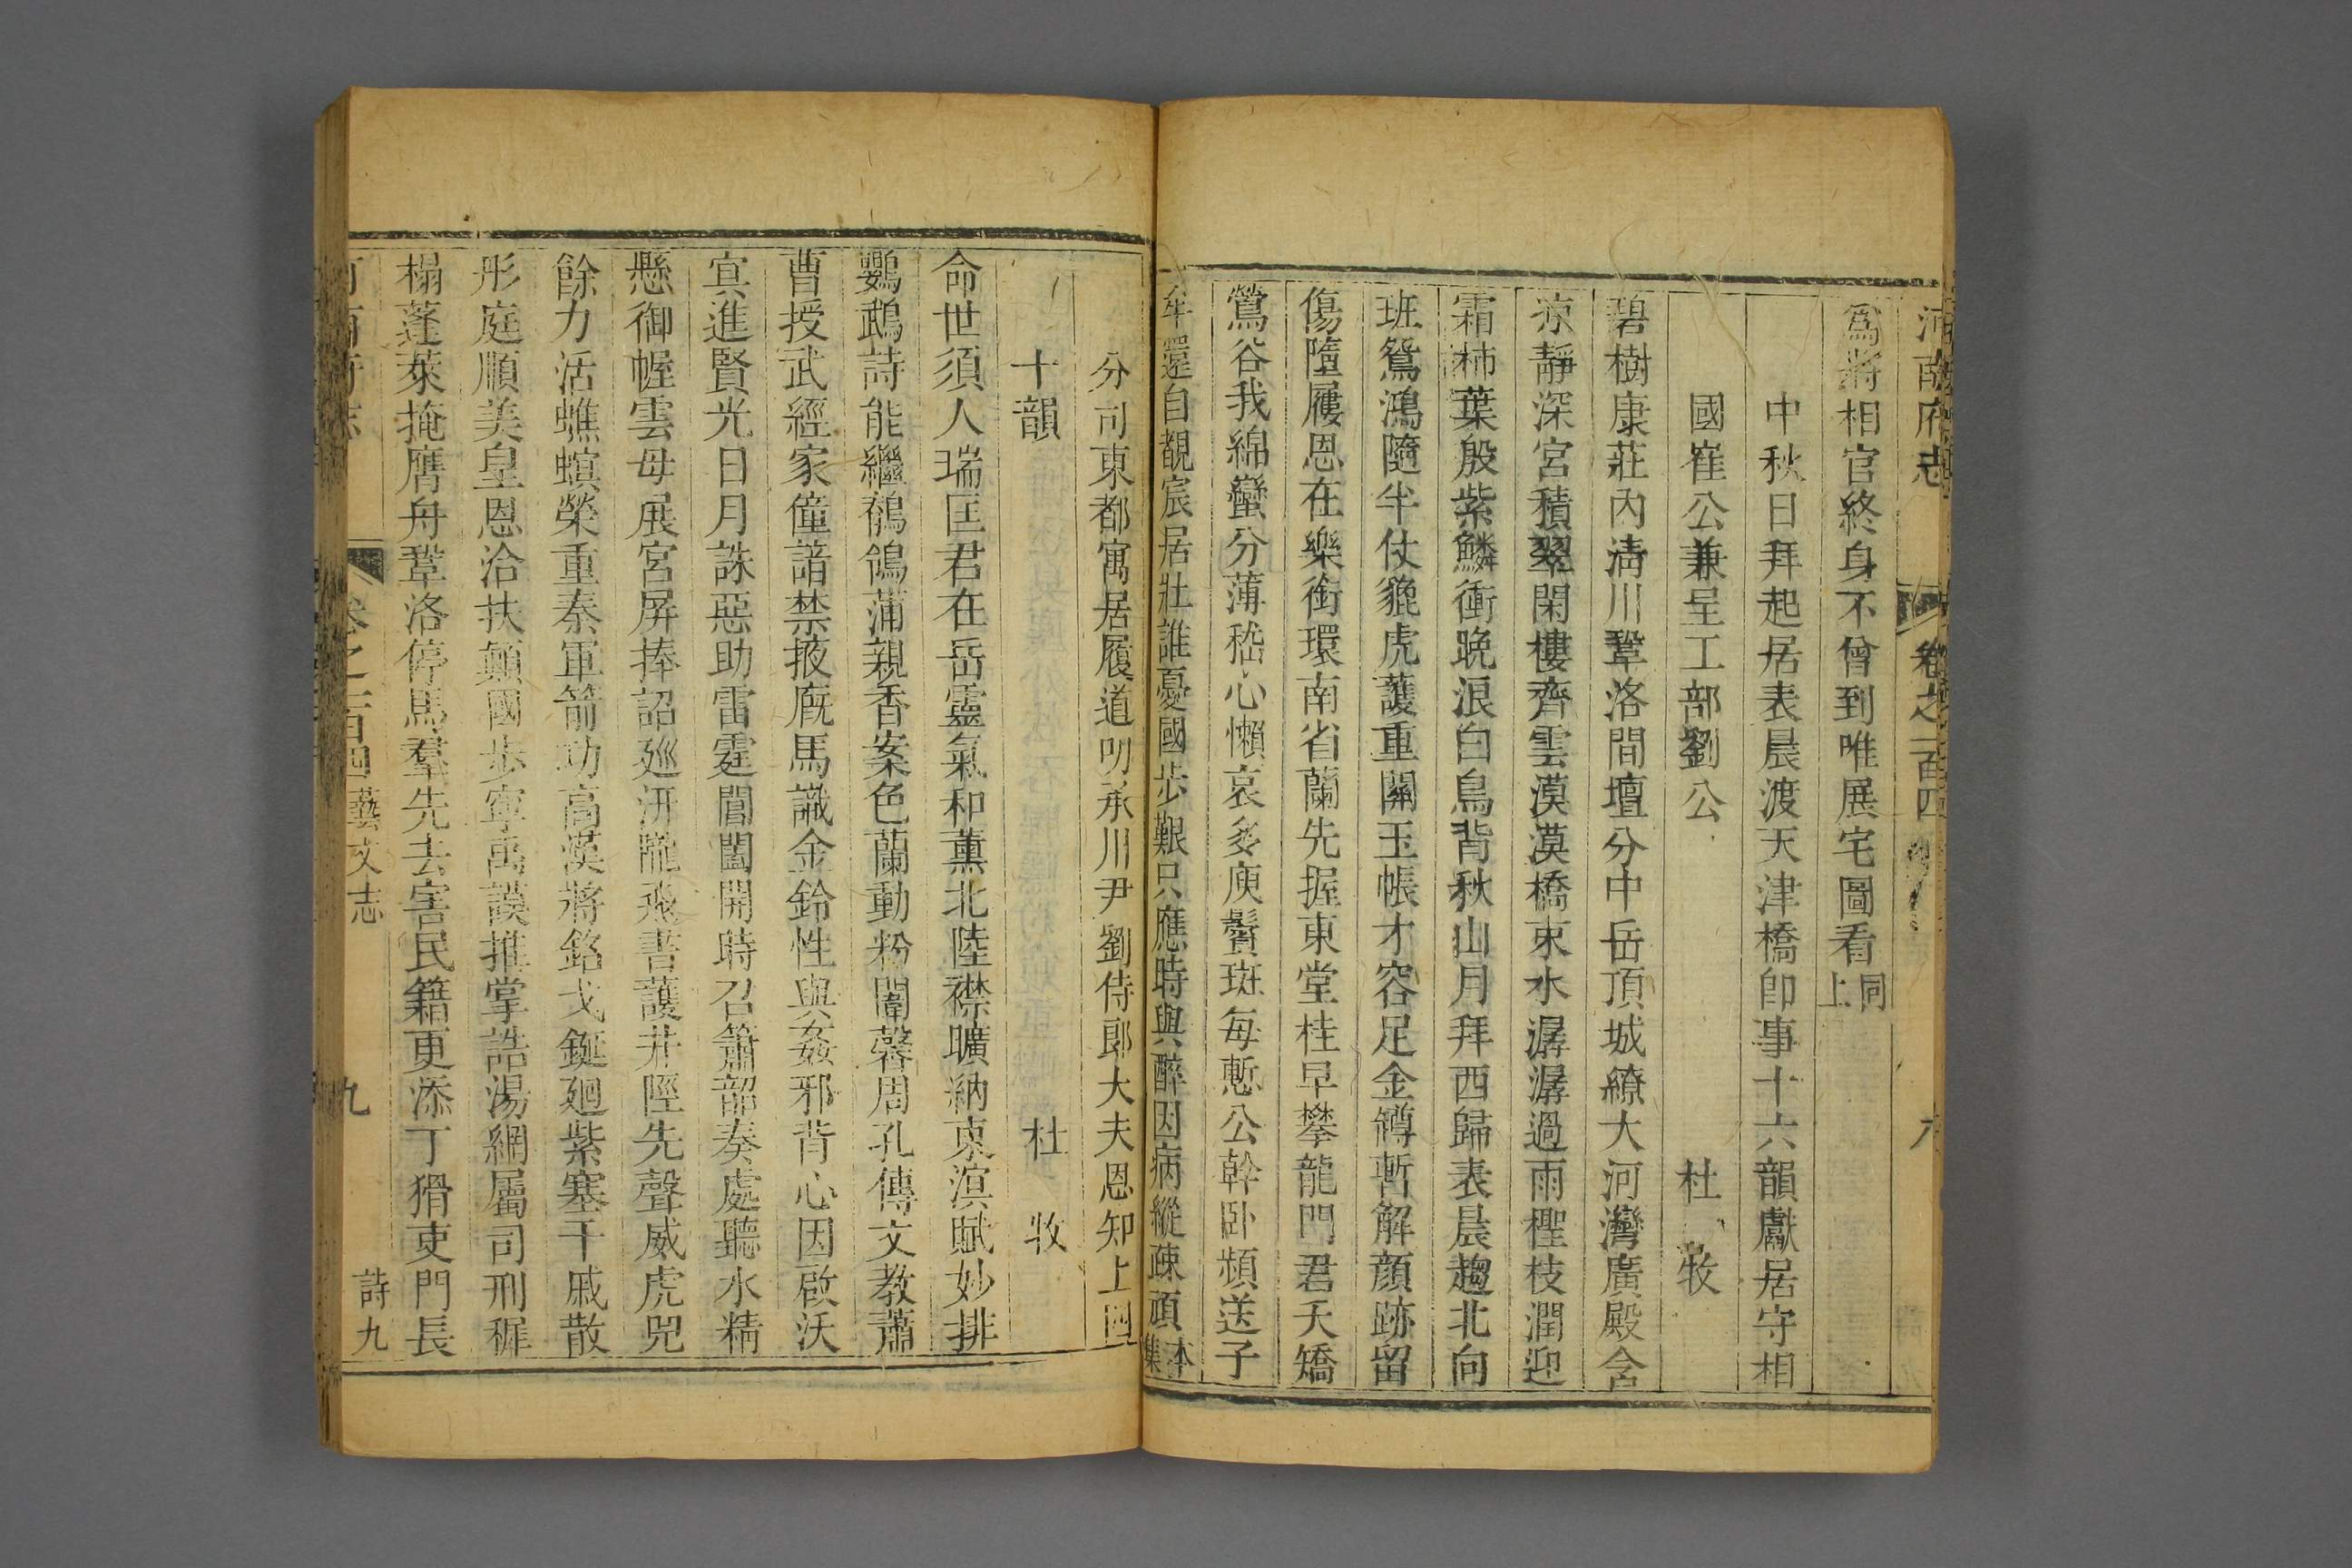 河南府志 卷之一百四
爲將相官終身不曾到唯展宅圖看同上
中秋日拜起居表晨渡天津橋卽事十六韻獻居守相
國崔公兼呈工部劉公
杜牧
碧樹康莊內清川鞏洛間壇分中岳頂城繚大河灣廣殿含
凉靜深宮積翠閑樓齊雲漠漠橋束水潺潺過雨檉枝潤迎
霜柿葉殷紫鱗衝晚浪白鳥背秋山月拜西歸表晨趨北向
班鴛鴻隨半仗貔虎護重關玉帳才容足金罇暫解顏跡留
傷墮屨恩在樂銜環南省蘭先握東堂桂早攀龍門君夭矯
鶯谷我綿蠻分薄嵇心懶哀多庾鬢斑每慙公幹卧頻送子
牟還自覩宸居壯誰憂國步艱只應時與醉因病縱疎頑本集
分司東都寓居履道叨承川尹劉侍郎大夫恩知上四
十韻
杜牧
命世須人瑞匡君在岳靈氣和薰北陸襟曠納東溟賦妙排
鸚鵡詩能繼鶺鴒蒲親香案色蘭動粉闈馨周孔傳文教蕭
曹授武經家僮諳禁掖廐馬識金鈴性與姦邪背心因啟沃
寘進賢光日月誅惡助雷霆閶闔開時召簫韶奏處聽水精
懸御幄雲母展宮屏捧詔巡汧隴飛書護井陘先聲威虎兕
餘力活蟭螟榮重秦軍箭功高漢將銘戈鋋廻紫塞干戚散
彤庭順美皇恩洽扶顚國步寧禹謨推掌誥湯網屬司刑穉
榻蓬萊掩膺舟鞏洛停馬羣先去害民籍更添丁猾吏門長
卷之一百四 藝文志 九 詩九